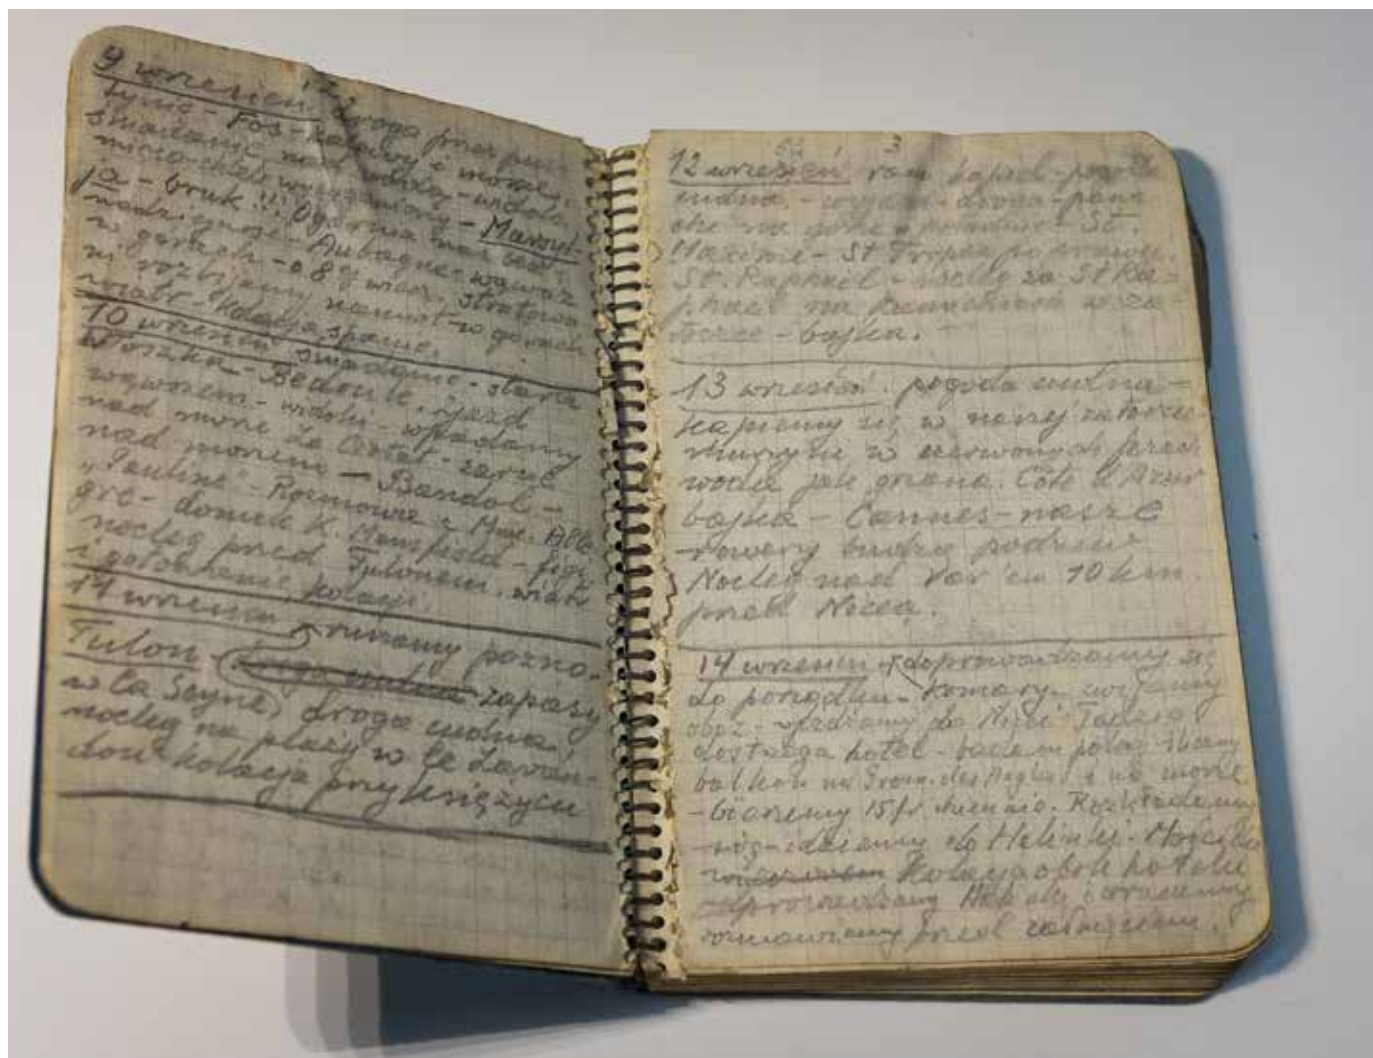 9 wrzesień droga przez pus-
tynię - Fos - kaktusy i morze,
śniadanie nad wodą - widok
miasteczko - Marsyl-
ja - bruk!!! Ogromna na bez-
nadziejność - Aubagne - wąwóz
w górach - o 8 ej wiecz. stratowa
ni rozbijamy namiot w górach
wiatr - kolacja spanie.
10 wrzesień śniadanie - stara
Włoszka - Bedoule, zjazd
wąwozem - widoki - wpadamy
nad morze La Ciotat - zaryc
nad morzem - Bandol -
"Pauline" - Rozmowa z Mme Allè
gre - domek K. Mansfield - figi
nocleg przed Tulonem. wiatr
i gotowanie kolacji.
11 wrzesień ruszamy pozno.
Tulon - zapasy
w La Seyne, droga cudna,
nocleg na plaży w Le Lavan-
dou kolacja przy księżycu
12 wrzesień rano kąpiel - pogoda
cudna, - droga -
na górze - St.
Maxime - St Tropez
St. Raphael - nocleg za St Ra-
phael na kamieniach w za-
toce - bajka.
13 wrzesień pogoda cudna -
kąpiemy się w naszej zatoce -
w czerwonych
woda jak Côte d'Azur
bajka - Cannes - nasze
rowery budzą podziw
Nocleg nad Var'em 10 km.
przed Niceą.
14 wrzesień doprowadzamy się
do porządku - komary - zwijamy
oboz - do Nicei Tadzio
dostrzega hotel - badam pokoj
balkon na Prom. des Anglais i na morze
- bierzemy 15 fr. dziennie. Rozkładamy
się - idziemy do Helenki.
Kolacja obok hotelu
odprowadzamy i wracamy
rozmawiamy przed zaśnięciem.